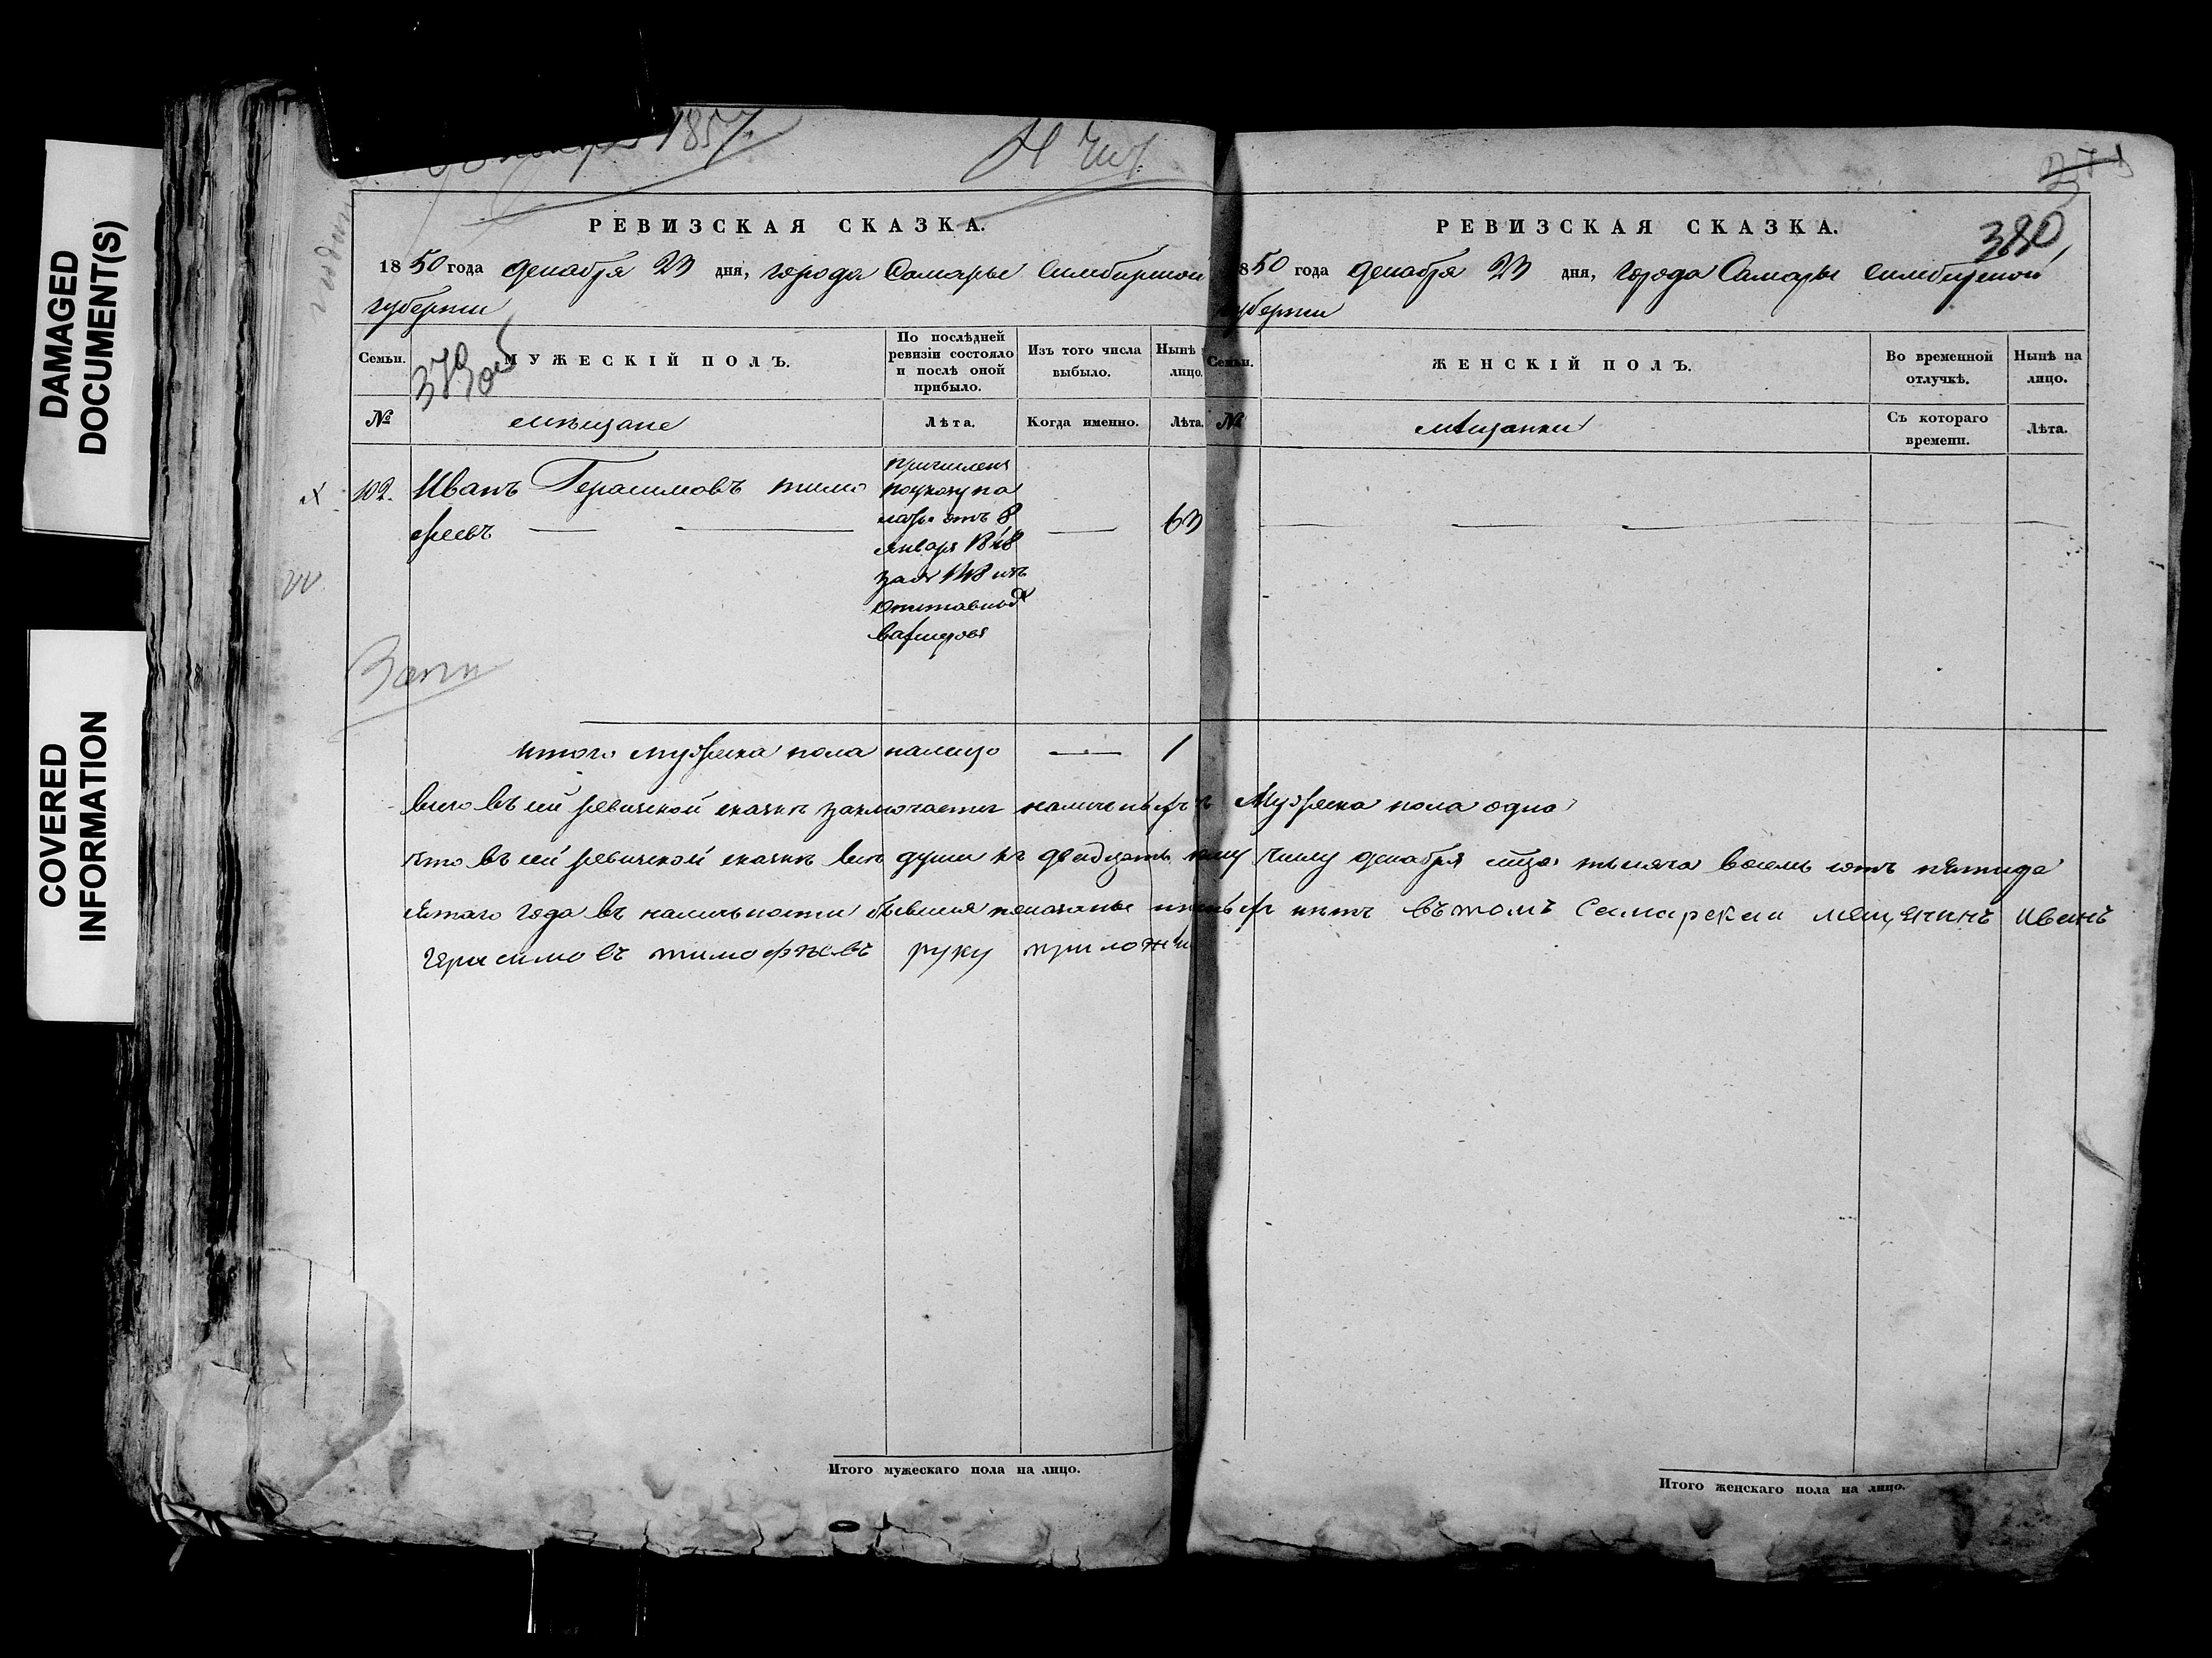 DAMAGED
DOCUMENT(S)
COVERED
INFORMATION
1857.
РЕВИЗСКАЯ СКАЗКА.
1850 года декабря 23 дня, города Самары Симбирской
губернии
379 об
Семьи. МУЖЕСКІЙ ПОЛЪ. По послѣдней ревизіи состояло и послѣ оной прибыло. Изъ того числа выбыло. Нынѣ лицо.
№ мѣщане Лѣта. Когда именно. Лѣта.
102. Иванъ Герасимовъ тимо
феевъ — — — 63
причисленъ
по указу па
латы отъ 8
января 1848
за № 148 изъ
отставныхъ
Итого мужеска пола налицо — 1
Всего въ сей ревизской сказке заключается наличныхъ Мужеска пола одна
Что въ сей ревизской сказке все души къ двадцать числу декабря мца тысяча восемь сотъ пятиде
сятаго года въ наличности бывшия показаны нетъ въ томъ Самарскаи мещенинъ Иванъ
Герасимовъ тимофѣевъ руку приложи
Итого мужескаго пола на лицо.
РЕВИЗСКАЯ СКАЗКА.
380
850 года декабря 23 дня, города Самары Симбирской
губернии
Семьи. ЖЕНСКІЙ ПОЛЪ. Во временной отлучкѣ. Нынѣ на лицо.
№ мещанки Съ котораго времени. Лѣта.
Итого женскаго пола на лицо.